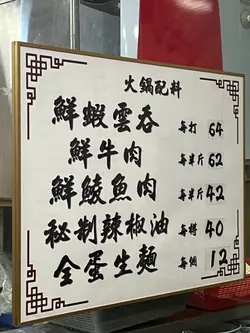 火鍋配料
鮮蝦雲吞 每打 64
鮮牛肉 每半斤 62
鮮鯪魚肉 每半斤 42
秘制辣椒油 每樽 40
全蛋生麵 每個 12